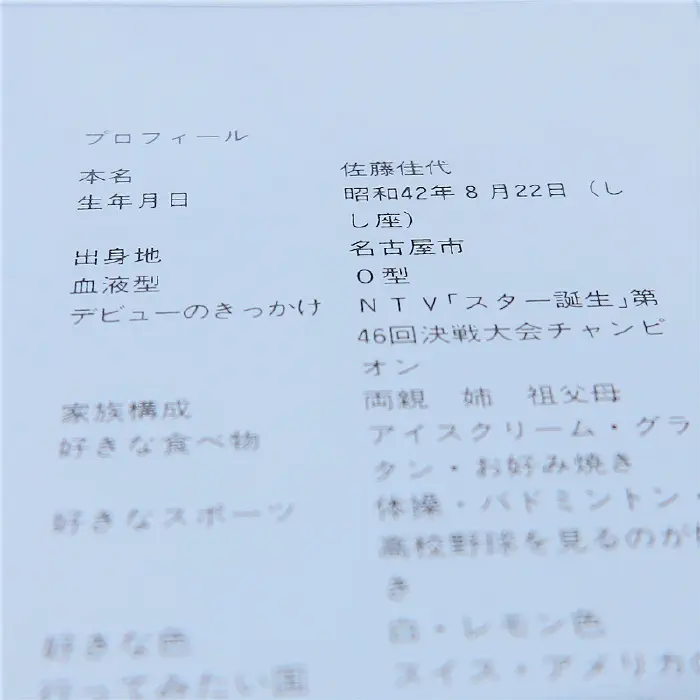 プロフィール
本名 佐藤佳代
生年月日 昭和42年8月22日（し
し座）
出身地 名古屋市
血液型 O型
デビューのきっかけ NTV「スター誕生」第
46回決戦大会チャンピ
オン
家族構成 両親 姉 祖父母
好きな食べ物 アイスクリーム・グラ
タン・お好み焼き
好きなスポーツ 体操・バドミントン・
高校野球を見るのが好
き
好きな色 白・レモン色
行ってみたい国 スイス・アメリカ